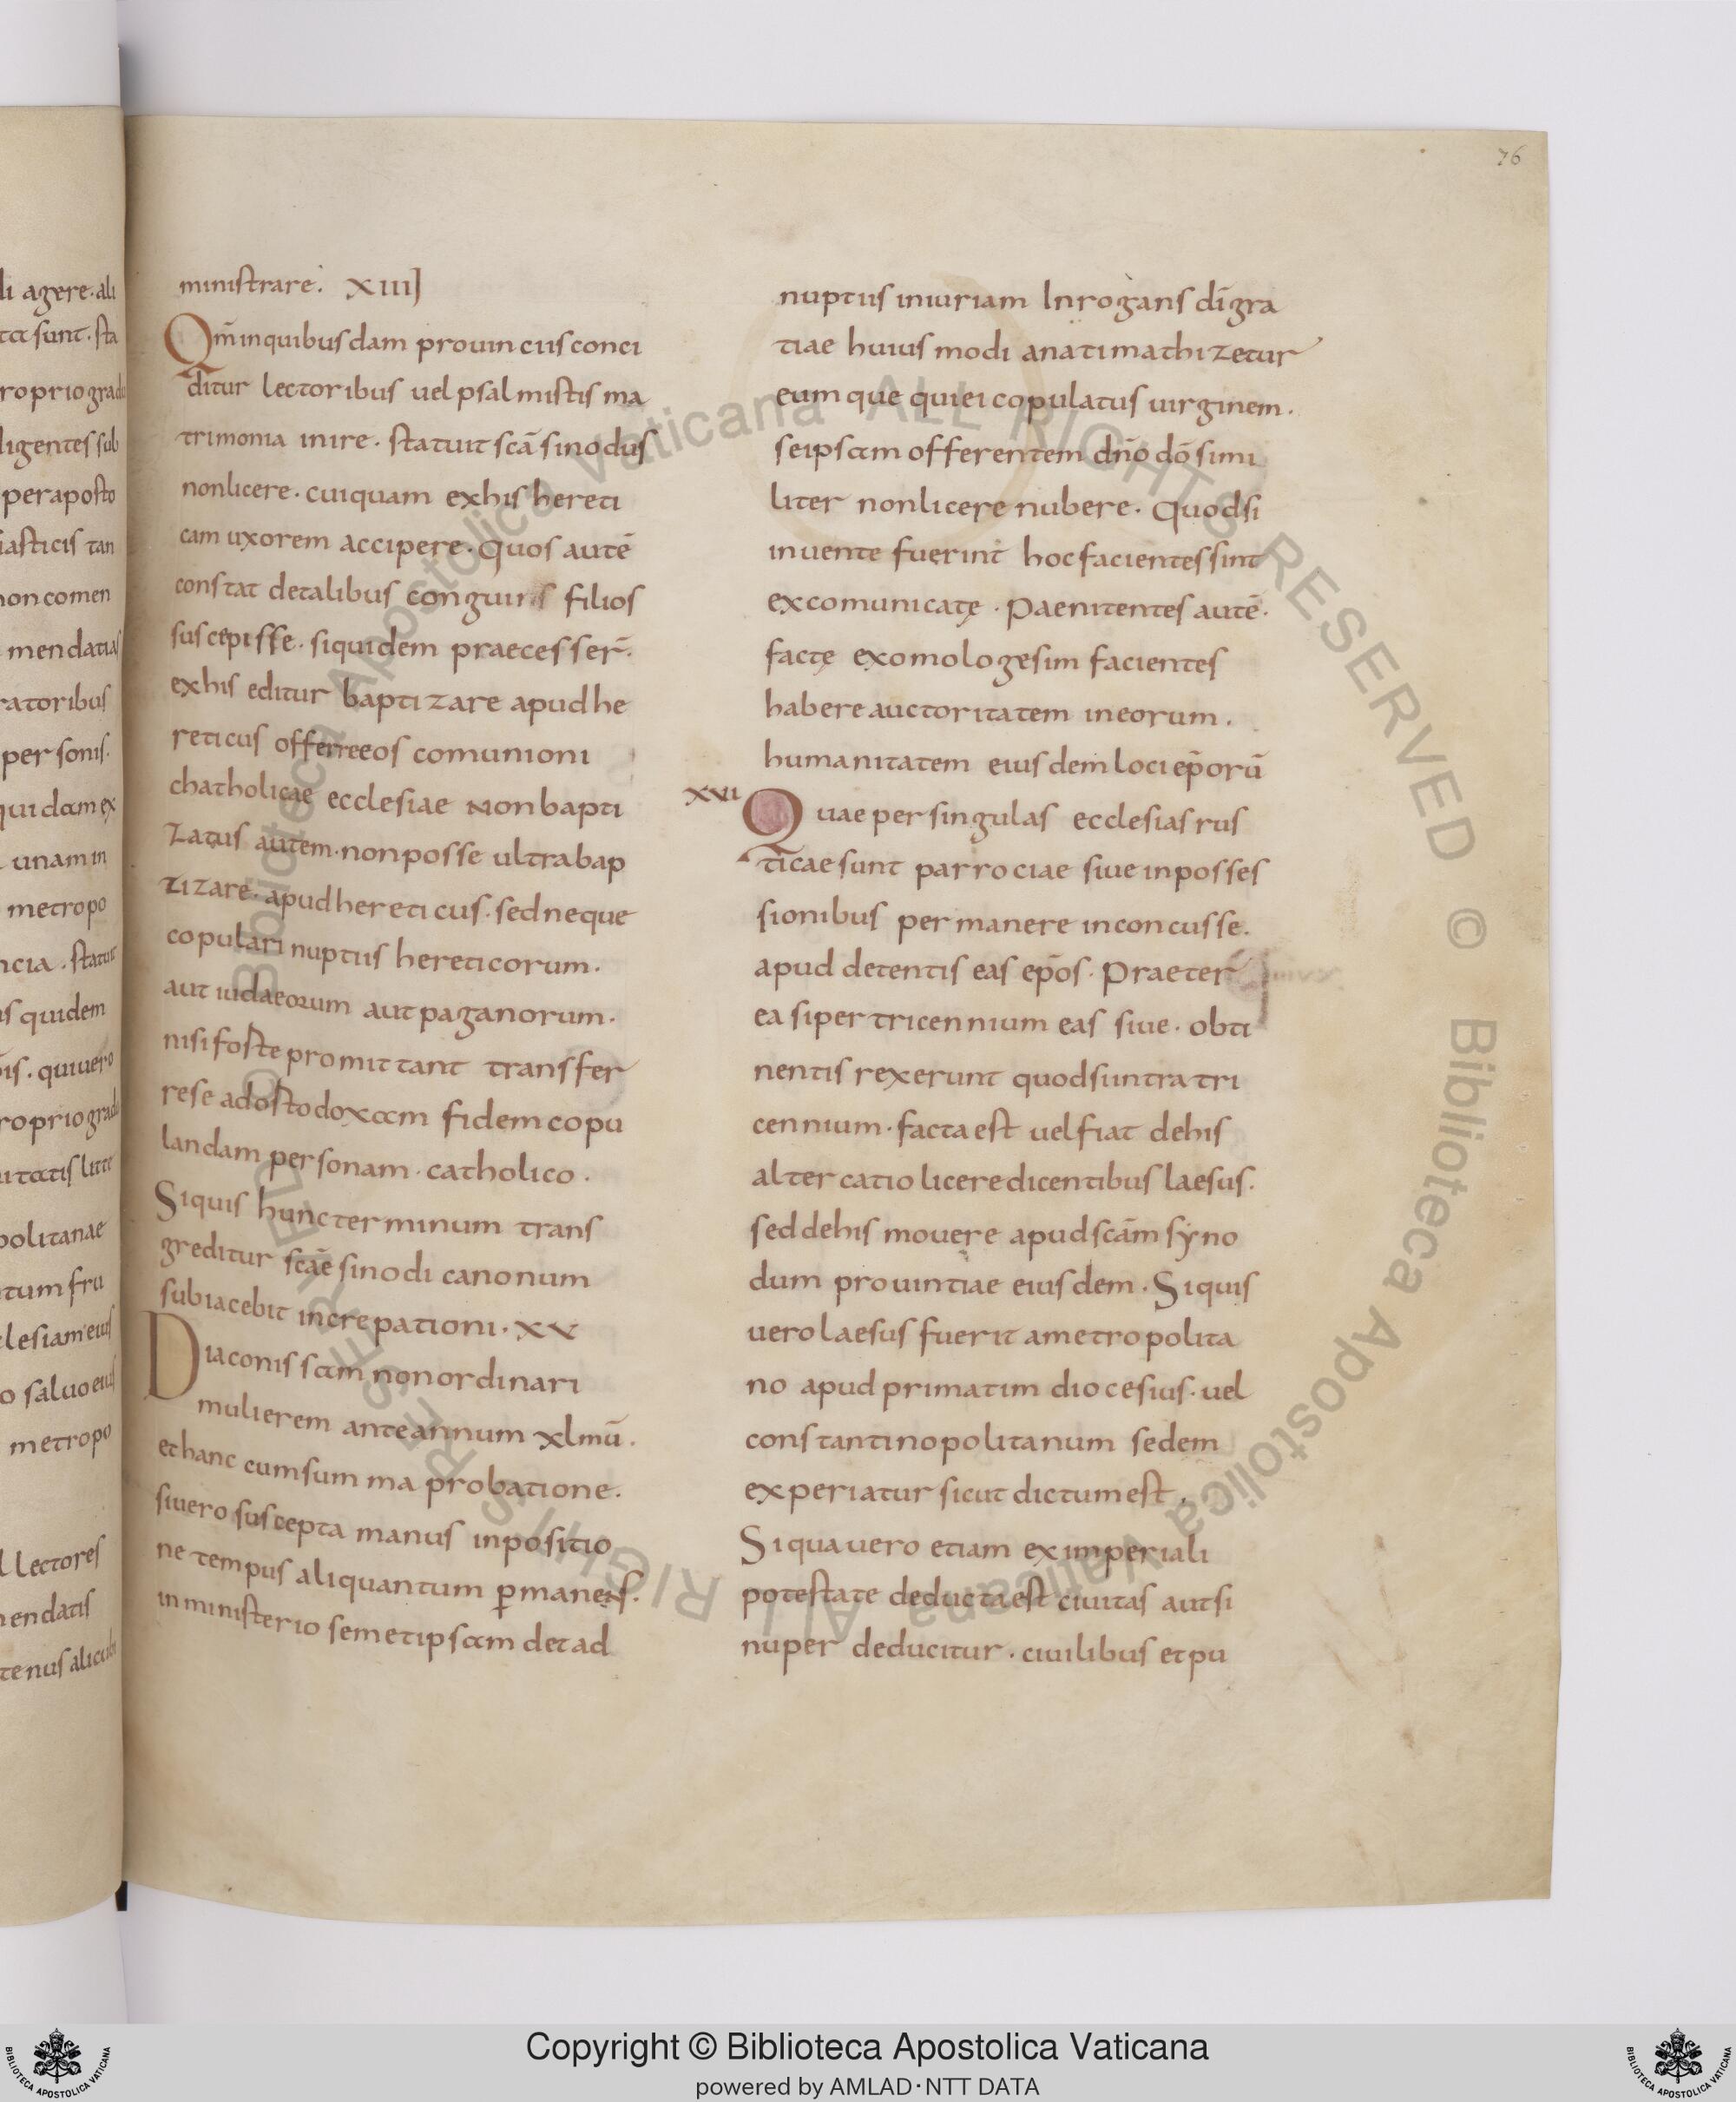 76
ministrare. XIII]
Qm̄ inquibusdam prouinciis conci
ditur lectoribus uel psalmistis ma
trimonia inire. statuit scā sinodus
non licere. cuiquam ex his hereti
cam uxorem accipere. Quos autē
constat detalibus filios
suscepisse. siquidem praecesser̄.
ex his editur baptizare apud he
reticus offerre eos comunioni
chatholicae ecclesiae Non bapti
zatus autem. non posse ultra bap
tizare. apud hereticus. sed neque
copulari nuptiis hereticorum.
aut iudaeorum aut paganorum.
nisi foste promittant transfer
re se ad ostodoxam fidem copu
landam personam. catholico.
Siquis hunc terminum trans
greditur scāe sinodi canonum
subiacebit increpationi. XV
Diaconissam non ordinari
mulierem ante annum xlmū.
et hanc cum summa probatione.
si uero suscepta manus inpositio
ne tempus aliquantum ꝑmanens.
in ministerio semetipsam det ad
nuptus iniuriam Inrogans dī gra
tiae huius modi anatimathizetur
eum que qui ei copulatus uirginem.
seipsam offerentem dn̄o dō simi
liter non licere nubere. Quod si
inuente fuerint hoc facientes sint
excomunicatę. Paenitentes autē.
factę exomologesim facientes
habere auctoritatem in eorum.
humanitatem eius dem loci ep̄orū
XVI
Quae per singulas ecclesias rus
ticae sunt parrociae siue in posses
sionibus permanere inconcusse.
apud detentis eas ep̄os. Praeter
ea si per tricennium eas siue. obti
nentis rexerunt quod si intra tri
cennium. facta est uel fiat de his
altercatio licere dicentibus laesus.
sed de his mouere apud scām syno
dum prouintiae eius dem. Siquis
uero laesus fuerit a metropolita
no apud primatim diocesius. uel
constantinopolitanum sedem
experiatur sicut dictum est.
Siqua uero etiam ex imperiali
potestate deducta est ciuitas aut si
nuper deducitur. ciuilibus et pu
Copyright © Biblioteca Apostolica Vaticana
powered by AMLAD·NTT DATA